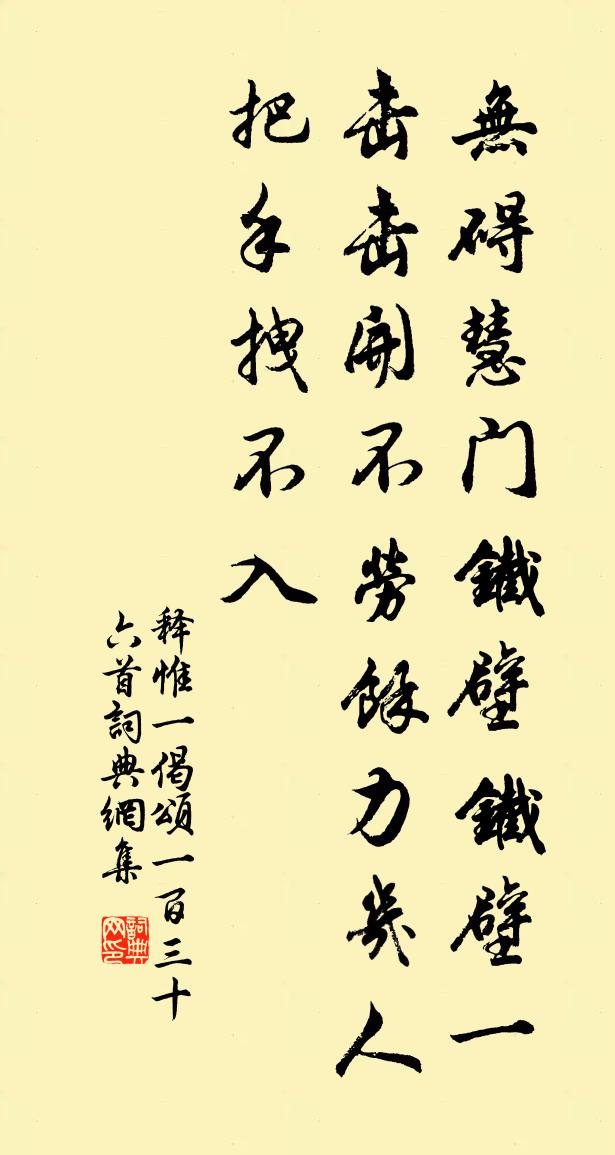 無碍慧門鐵壁鐵壁一
击击開不勞餘力幾人
把手拽不入
释惟一偈頌一百三十
六首詞典網集
詞典网印